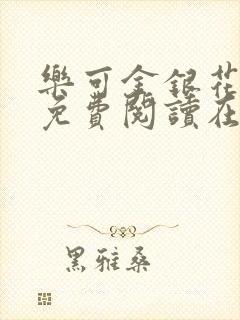 樂可金銀花
免費閱讀在
黑雅桑